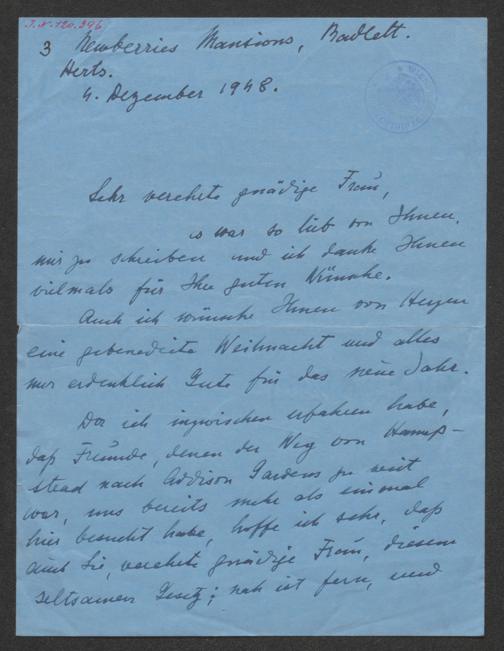 J.N. 120.396
3 Newberries Mansions, Radlett.
Herts.
4. Dezember 1948.
Sehr verehrte gnädige Frau,
es war so lieb von Ihnen,
mir zu schreiben und ich danke Ihnen
vielmals für Ihre guten Wünsche.
Auch ich wünsche Ihnen von Herzen
eine gebenedeite Weihnacht und alles
nur erdenklich Gute für das neue Jahr.
Da ich inzwischen erfahren habe,
daß Freunde, denen der Weg von Hamp-
stead nach Addison Gardens zu weit
war, uns bereits mehr als einmal
hier besucht habe, hoffe ich sehr, daß
auch Sie, verehrte gnädige Frau, diesem
seltsamen Gesetz; nah ist fern, und